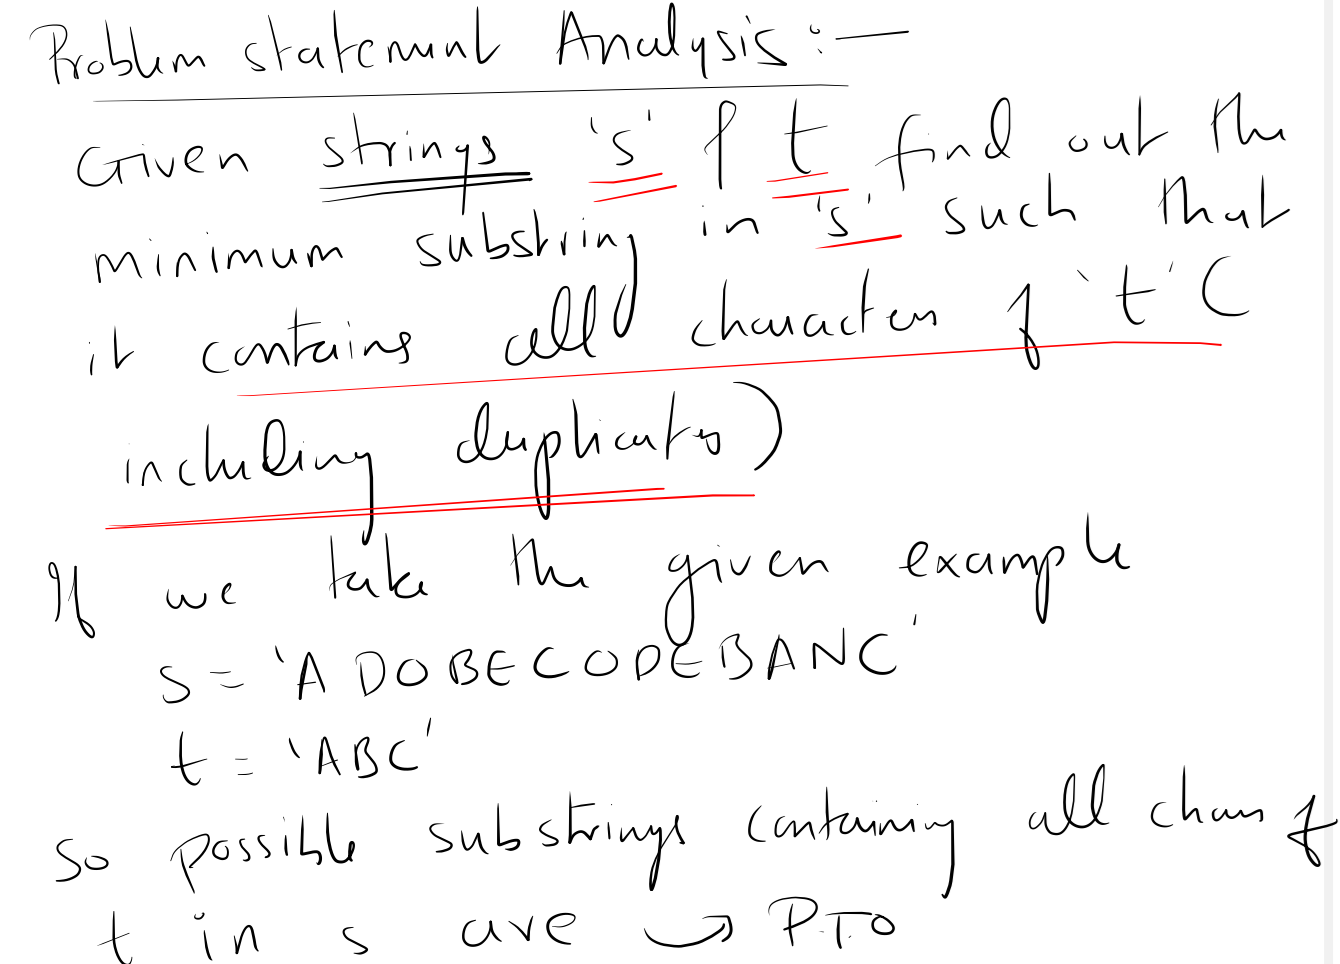 Problem statement Analysis:—
Given strings 's' & t find out the
minimum substring in 's' such that
it contains all characters of 't' (
including duplicates)
If we take the given example
s = 'ADOBECODEBANC'
t = 'ABC'
So possible substrings containing all chars of
t in s are → P.T.O